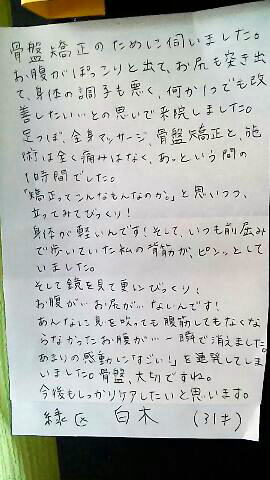 骨盤矯正のために伺いました。
お腹がぽっこりと出て、お尻も突き出
て、身体の調子も悪く、何か1つでも改
善したい…との思いで来院しました。
足つぼ、全身マッサージ、骨盤矯正と、施
術は全く痛みはなく、あっという間の
1時間でした。
「矯正ってこんなもんなのか。」と思いつつ、
立ってみてびっくり!
身体が軽いんです!そして、いつも前屈み
で歩いていた私の背筋が、ピンッとして
いました。
そして鏡を見て更にびっくり!
お腹が…お尻が…ないんです!
あんなに息を吸っても腹筋してもなくな
らなかったお腹が…一瞬で消えました。
あまりの感動に「すごい!」を連発してしま
いました。骨盤、大切ですね。
今後もしっかりケアしたいと思います。
緑区 白木 (31才)